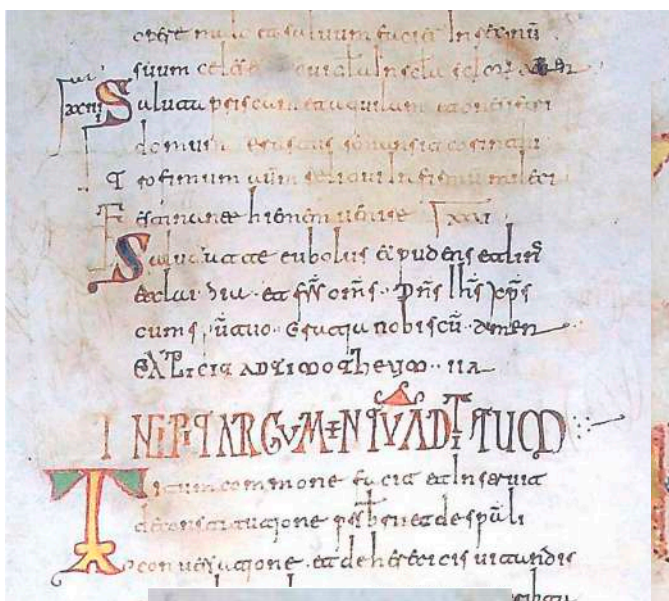 opere malo et saluum faciet In regnũ
suum celeste cui gla In scla sclor amen
Saluta priscam et aquilam et onesifori
domum erastus remansit corinti
Trofimum aũm reliqui Infirmum mileti
Festina ante hiemem uenire
Salutat te eubolus et pudens et lin
et claudia et frs om̅s · Dn̅s ih̅s xp̅s
cum sp̅u tuo · Gratia nobiscũ · amen
EXPLICIT AD TIMOTHEUM · IIA
INCIPIT ARGUMENTU AD TITUM
Titum commone facit et Instruit
de constitutione et de sp̅uali
conuersatione et de hereticis uitandis